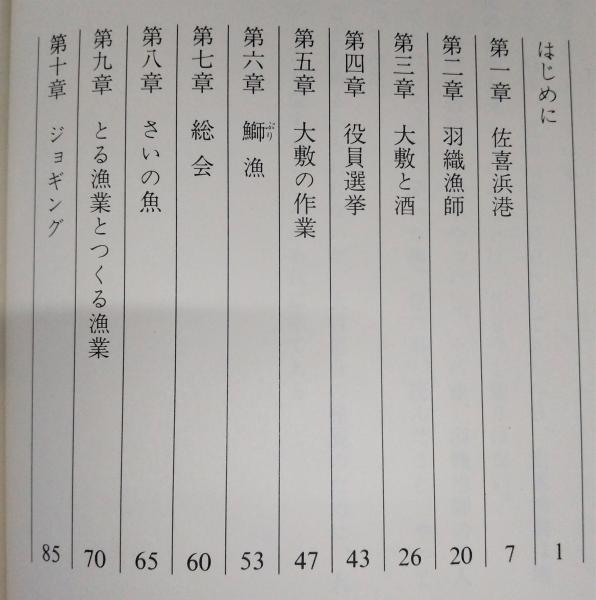 はじめに 1
第一章 佐喜浜港 7
第二章 羽織漁師 20
第三章 大敷と酒 26
第四章 役員選挙 43
第五章 大敷の作業 47
第六章 鰤漁 53
ぶり
第七章 総会 60
第八章 さいの魚 65
第九章 とる漁業とつくる漁業 70
第十章 ジョギング 85